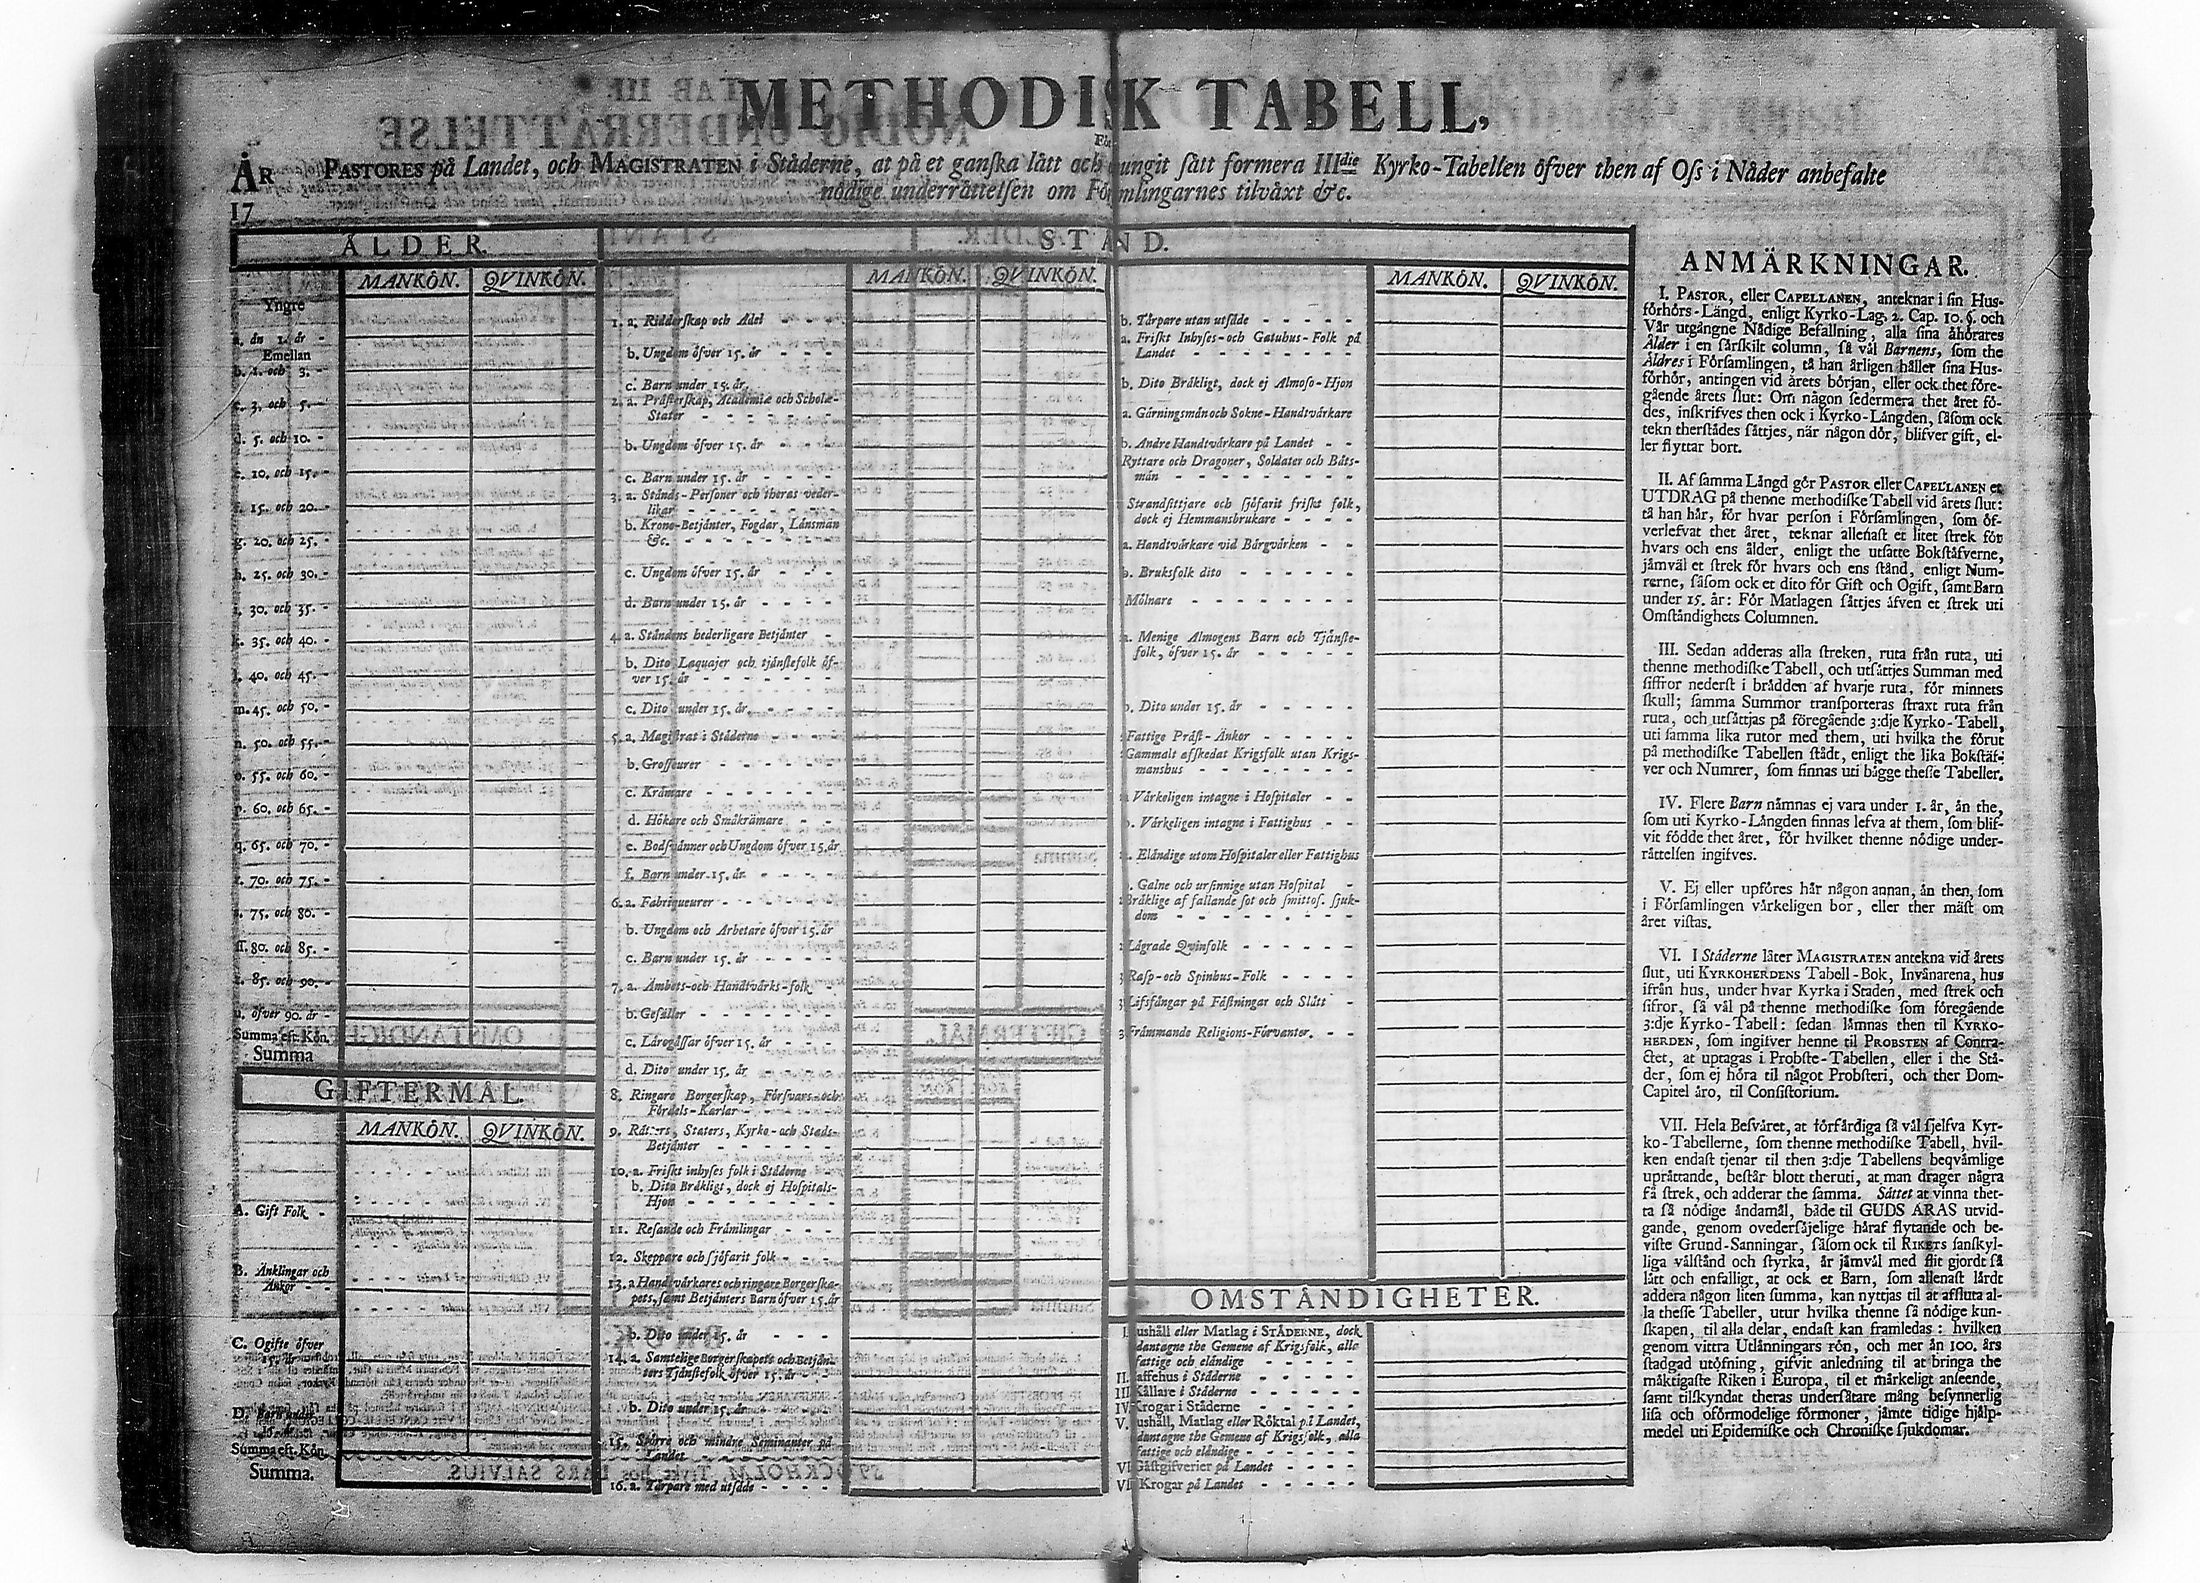 METHODISK TABELL,
För
ÅR PASTORES på Landet, och MAGISTRATEN i Ståderne, at på et ganſka lått och tungit ſått formera IIIdie Kyrko-Tabellen öfver then af Oſs i Nåder anbefalte
17 nödige underråttelſen om Förſamlingarnes tilvåxt &c.
ÅLDER.
MANKÖN. QVINKÖN.
Yngre
a. ån 1. år -
Emellan
b. 1. och 3. -
c. 3. och 5. -
d. 5. och 10. -
e. 10. och 15. -
f. 15. och 20. -
g. 20. och 25. -
h. 25. och 30. -
i. 30. och 35. -
k. 35. och 40. -
l. 40. och 45. -
m. 45. och 50. -
n. 50. och 55. -
o. 55. och 60. -
p. 60. och 65. -
q. 65. och 70. -
r. 70. och 75. -
s. 75. och 80. -
ſſ. 80. och 85. -
t. 85. och 90. -
u. öfver 90. år -
Summa eft. Kön.
Summa
GIFTERMÅL.
MANKÖN. QVINKÖN.
A. Gift Folk -
B. Ånklingar och
Ånkor - -
C. Ogifte öfver
15. år
D. Barn under
15. år
Summa eft. Kön.
Summa.
STÅND.
MANKÖN. QVINKÖN.
1. a. Ridderſkap och Adel - - -
b. Ungdom öfver 15. år - - -
c. Barn under 15. år - - -
2. a. Pråſterſkap, Academiæ och Scholæ-
Stater - - - - -
b. Ungdom öfver 15. år - - -
c. Barn under 15. år - - - -
3. a. Stånds-Perſoner och theras veder-
likar - - - - - -
b. Krono-Betjånter, Fogdar, Lånsmån
&c. - - - - - -
c. Ungdom öfver 15. år - - -
d. Barn under 15. år - - - -
4. a. Ståndens hederligare Betjånter -
b. Dito Laquajer och tjånſtefolk öf-
ver 15. år - - - - - -
c. Dito under 15. år - - - -
5. a. Magiſtrat i Ståderne - - - -
b. Groſſeurer - - - - - -
c. Kråmare - - - - - - -
d. Hökare och Småkråmare - - -
e. Bodſvånner och Ungdom öfver 15. år
f. Barn under 15. år - - - -
6. a. Fabriqueurer - - - - - -
b. Ungdom och Arbetare öfver 15. år
c. Barn under 15. år - - - -
7. a. Åmbets-och Handtvårks-folk
b. Geſåller - - - - - -
c. Lårogåſſar öfver 15. år - - -
d. Dito under 15. år - - - -
8. Ringare Borgerſkap, Förſvars-och
Fördels-Karlar - - - -
9. Råttens, Staters, Kyrko-och Stads-
Betjånter - - - - -
10. a. Friſkt inhyſes folk i Ståderne
b. Dito Bråkligt, dock ej Hoſpitals-
Hjon - - - - - -
11. Reſande och Fråmlingar - - -
12. Skeppare och ſjöfarit folk - - -
13. a Handtvårkares och ringare Borgerſka-
pets, ſamt Betjånters Barn öfver 15. år
b. Dito under 15. år - - -
14. a. Samtelige Borgerſkapets och Betjån-
ters Tjånſtefolk öfver 15. år - -
b. Dito under 15. år - - - -
15. Större och mindre Seminanter på
Landet - - - - - -
16. a. Torpare med utſåde - - - -
MANKÖN. QVINKÖN.
b. Torpare utan utſåde - - - - -
a. Friſkt Inhyſes-och Gatuhus-Folk på
Landet - - - - - - -
b. Dito Bråkligt, dock ej Almoſo-Hjon
a. Gårningsmån och Sokne-Handtvårkare
b. Andre Handtvårkare på Landet - -
Ryttare och Dragoner, Soldater och Båts-
mån - - - - - - - -
Strandſittjare och ſjöfarit friſkt folk,
dock ej Hemmansbrukare - - - -
a. Handtvårkare vid Bårgvårken - -
b. Bruksfolk dito - - - - - -
Mölnare - - - - - - - -
a. Menige Almogens Barn och Tjånſte-
folk, öfver 15. år - - - - -
b. Dito under 15. år - - - - -
Fattige Pråſt-Ånkor - - - - -
Gammalt afſkedat Krigsfolk utan Krigs-
manshus - - - - - - -
Vårkeligen intagne i Hoſpitaler - -
b. Vårkeligen intagne i Fattighus - -
Elåndige utom Hoſpitaler eller Fattighus
Galne och urſinnige utan Hoſpital -
Bråklige af fallande ſot och ſmittoſ. ſjuk-
dom - - - - - - - -
Lågrade Qvinfolk - - - - - -
Raſp-och Spinhus-Folk - - - -
Lifsfångar på Fåſtningar och Slått -
Fråmmande Religions-Förvanter. - -
OMSTÅNDIGHETER.
I. ushåll eller Matlag i STÅDERNE, dock
undantagne the Gemene af Krigsfolk, alle
fattige och elåndige - - - - -
II. affehus i Ståderne - - - - -
III Kållare i Ståderne - - - - -
IV Krogar i Ståderne - - - - -
V. ushåll, Matlag eller Röktal på Landet,
undantagne the Gemene af Krigsfolk, alla
fattige och elåndige - - - - -
VI Gåſtgifverier på Landet - - - -
VII Krogar på Landet - - - - -
ANMÄRKNINGAR.
I. PASTOR, eller CAPELLANEN, anteknar i ſin Hus-
förhörs-Långd, enligt Kyrko-Lag. 2. Cap. 10. §. och
Vår utgångne Nådige Befallning, alla ſina åhörares
Ålder i en ſårſkilt column, ſå vål Barnens, ſom the
Åldres i Förſamlingen, tå han årligen håller ſina Hus-
förhör, antingen vid årets början, eller ock thet före-
gående årets ſlut: Om någon ſedermera thet året fö-
des, inſkrifves then ock i Kyrko-Långden, ſåſom ock
tekn therſtådes ſåttjes, når någon dör, blifver gift, el-
ler flyttar bort.
II. Af ſamma Långd gör PASTOR eller CAPELLANEN et
UTDRAG på thenne methodiſke Tabell vid årets ſlut:
tå han hår, för hvar perſon i Förſamlingen, ſom öf-
verlefvat thet året, teknar allenaſt et litet ſtrek för
hvars och ens ålder, enligt the utſatte Bokſtåfverne,
jåmvål et ſtrek för hvars och ens ſtånd, enligt Num-
rerne, ſåſom ock et dito för Gift och Ogift, ſamt Barn
under 15. år: För Matlagen ſåttjes åfven et ſtrek uti
Omſtåndighets Columnen.
III. Sedan adderas alla ſtreken, ruta från ruta, uti
thenne methodiſke Tabell, och utſåttjes Summan med
ſiffror nederſt i brådden af hvarje ruta, för minnets
ſkull; ſamma Summor transporteras ſtraxt ruta från
ruta, och utſåttjas på föregående 3:dje Kyrko-Tabell,
uti ſamma lika rutor med them, uti hvilka the förut
på methodiſke Tabellen ſtådt, enligt the lika Bokſtåf-
ver och Numrer, ſom finnas uti bågge theſſe Tabeller.
IV. Flere Barn nåmnas ej vara under 1. år, ån the,
ſom uti Kyrko-Långden finnas lefva af them, ſom blif-
vit födde thet året, för hvilket thenne nödige under-
råttelſen ingifves.
V. Ej eller upföres hår någon annan, ån then, ſom
i Förſamlingen vårkeligen bor, eller ther måſt om
året viſtas.
VI. I Ståderne låter MAGISTRATEN antekna vid årets
ſlut, uti KYRKOHERDENS Tabell-Bok, Invånarena, hus
ifrån hus, under hvar Kyrka i Staden, med ſtrek och
ſifror, ſå vål på thenne methodiſke ſom föregående
3:dje Kyrko-Tabell: ſedan låmnas then til KYRKO-
HERDEN, ſom ingifver henne til PROBSTEN af Contra-
ctet, at uptagas i Probſte-Tabellen, eller i the Stå-
der, ſom ej höra til något Probſteri, och ther Dom-
Capitel åro, til Conſiſtorium.
VII. Hela Beſvåret, at förfårdiga ſå vål ſjelfva Kyr-
ko-Tabellerne, ſom thenne methodiſke Tabell, hvil-
ken endaſt tjenar til then 3:dje Tabellens beqvåmlige
upråttande, beſtår blott theruti, at man drager några
få ſtrek, och adderar the ſamma. Såttet at vinna thet-
ta ſå nödige åndamål, både til GUDS ÅRAS utvid-
gande, genom ovederſåjelige håraf flytande och be-
viſte Grund-Sanningar, ſåſom ock til RIKETS ſanſkyl-
liga vålſtånd och ſtyrka, år jåmvål med flit gjordt ſå
lått och enfalligt, at ock et Barn, ſom allenaſt lårdt
addera någon liten ſumma, kan nyttjas til at affluta al-
la theſſe Tabeller, utur hvilka thenne ſå nödige kun-
ſkapen, til alla delar, endaſt kan framledas: hvilken
genom vittra Utlånningars rön, och mer ån 100. års
ſtadgad utöfning, gifvit anledning til at bringa the
måktigaſte Riken i Europa, til et mårkeligt anſeende,
ſamt tilſkyndat theras underſåtare mång beſynnerlig
liſa och oförmodelige förmoner, jåmte tidige hjålp-
medel uti Epidemiſke och Chroniſke ſjukdomar.